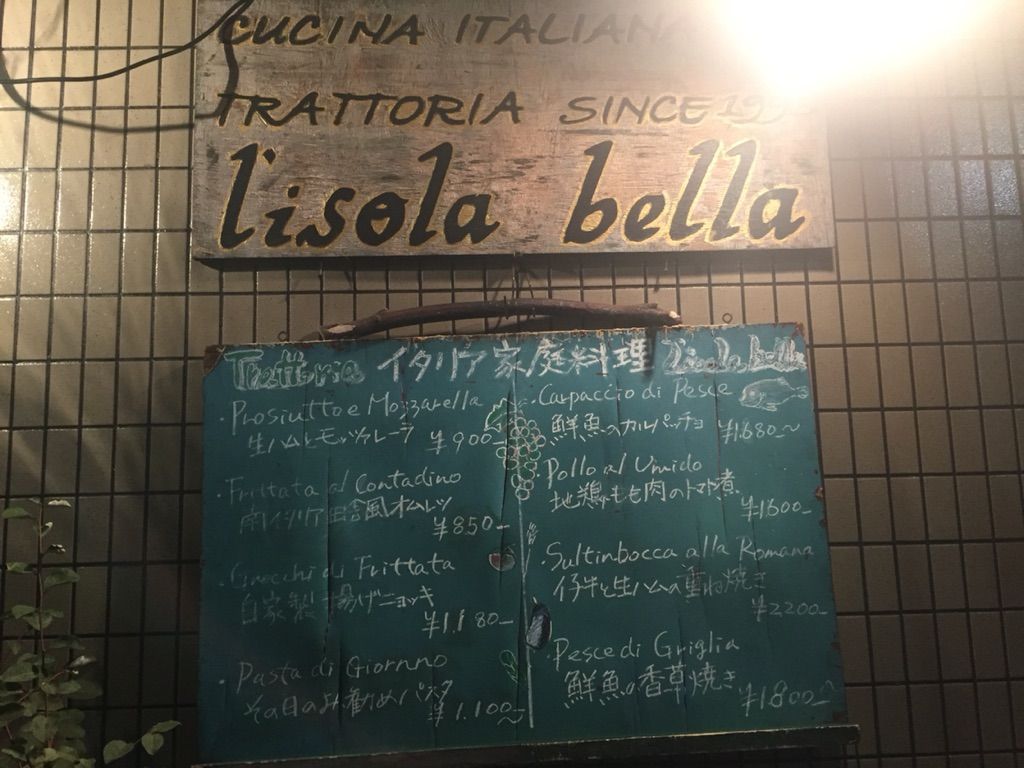 CUCINA ITALIANA
TRATTORIA SINCE
l'isola bella
Trattoria イタリア家庭料理 l'isola bella
・Prosiutto e Mozzarella
生ハムとモッツァレーラ ¥900-
・Frittata al Contadino
南イタリア田舎風オムレツ
¥850-
・Gnocchi di Frittata
自家製 揚げニョッキ
¥1.180-
・Pasta di Giornno
その日のお勧めパスタ
¥1.100~
・Carpaccio di Pesce
鮮魚のカルパッチョ ¥1.680~
・Pollo al Umido
地鶏もも肉のトマト煮
¥1600-
・Sultinbocca alla Romana
仔牛と生ハムの重ね焼き
¥2200-
・Pesce di Griglia
鮮魚の香草焼き
¥1.800~